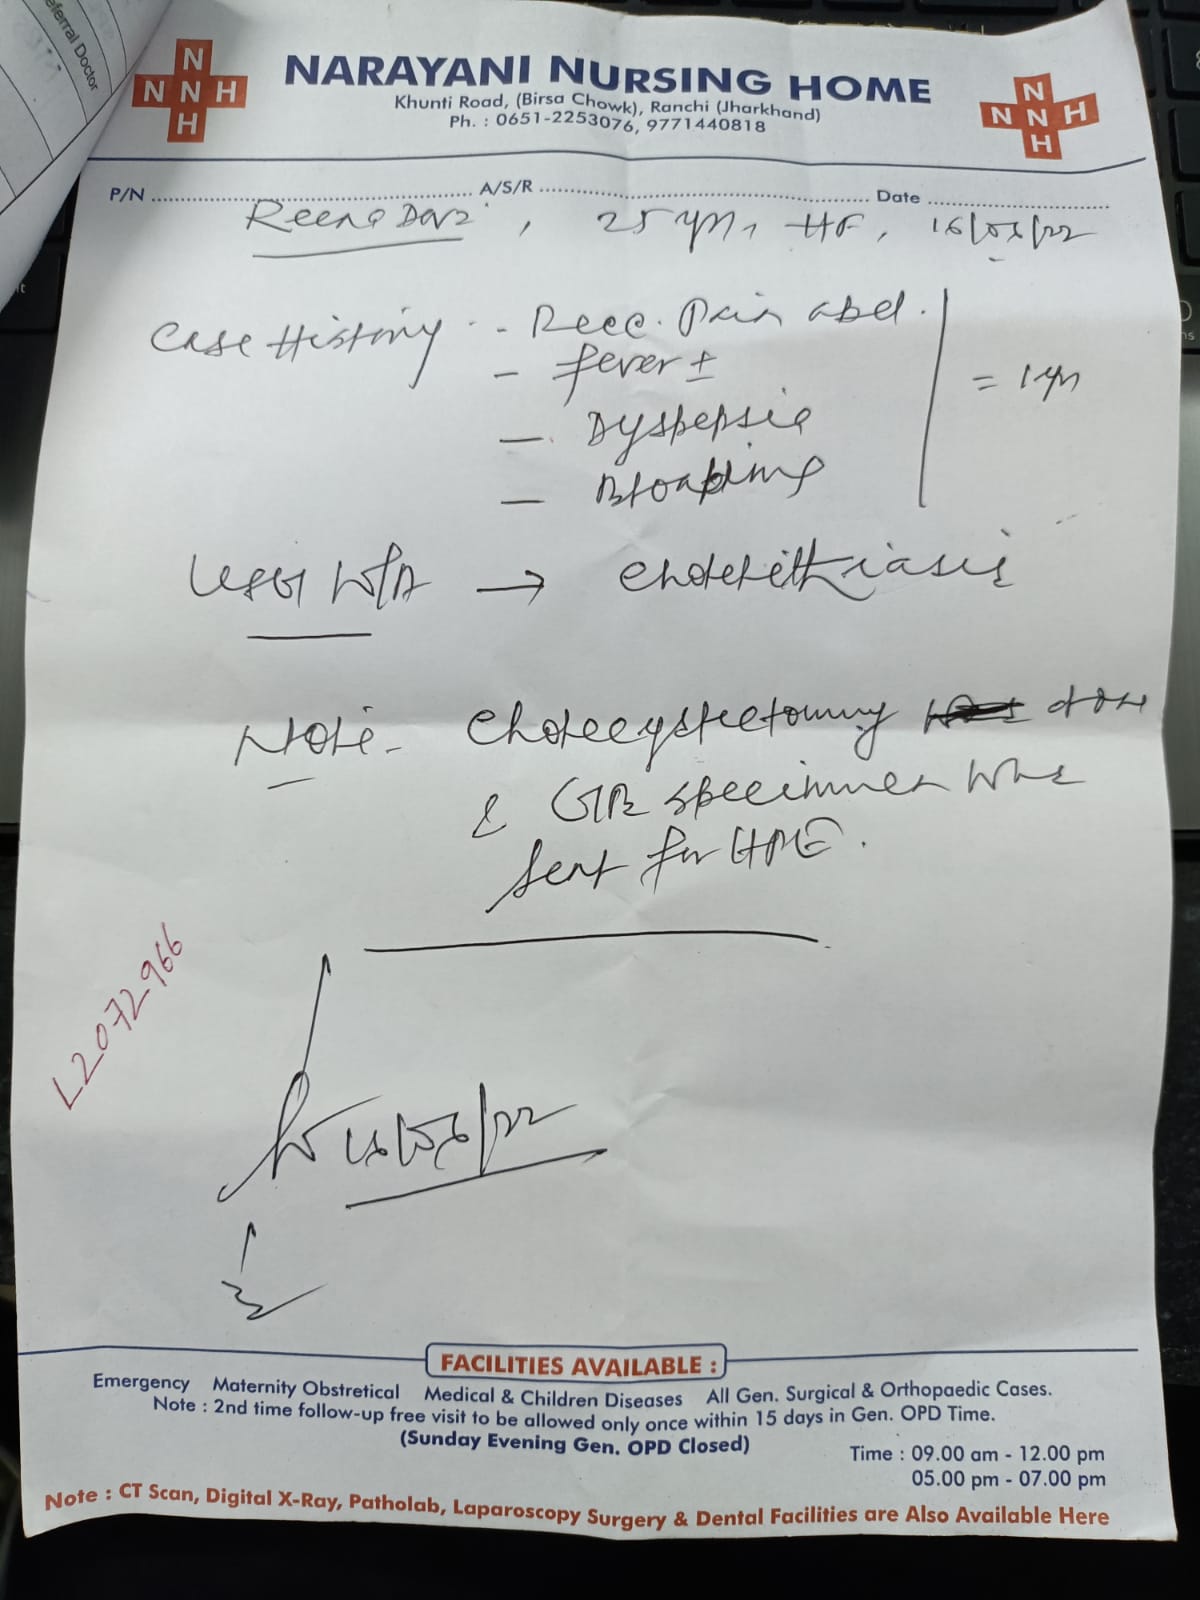 eferral Doctor
N
N N H
H
NARAYANI NURSING HOME
Khunti Road, (Birsa Chowk), Ranchi (Jharkhand)
Ph. : 0651-2253076, 9771440818
N
N N H
H
P/N ........ A/S/R ........ Date ........
Reena Devi, 25 yrs, HF, 16/05/22
Case History - Recc. Pain abd.
- fever ±
- Dyspepsia
- Bloating
= 1 yr
USG W/A → Cholelithiasis
Note - Cholecystectomy done
& GB specimen was
sent for HPE.
L2072966
16/05/22
FACILITIES AVAILABLE :
Emergency Maternity Obstretical Medical & Children Diseases All Gen. Surgical & Orthopaedic Cases.
Note : 2nd time follow-up free visit to be allowed only once within 15 days in Gen. OPD Time.
(Sunday Evening Gen. OPD Closed)
Time : 09.00 am - 12.00 pm
05.00 pm - 07.00 pm
Note : CT Scan, Digital X-Ray, Patholab, Laparoscopy Surgery & Dental Facilities are Also Available Here